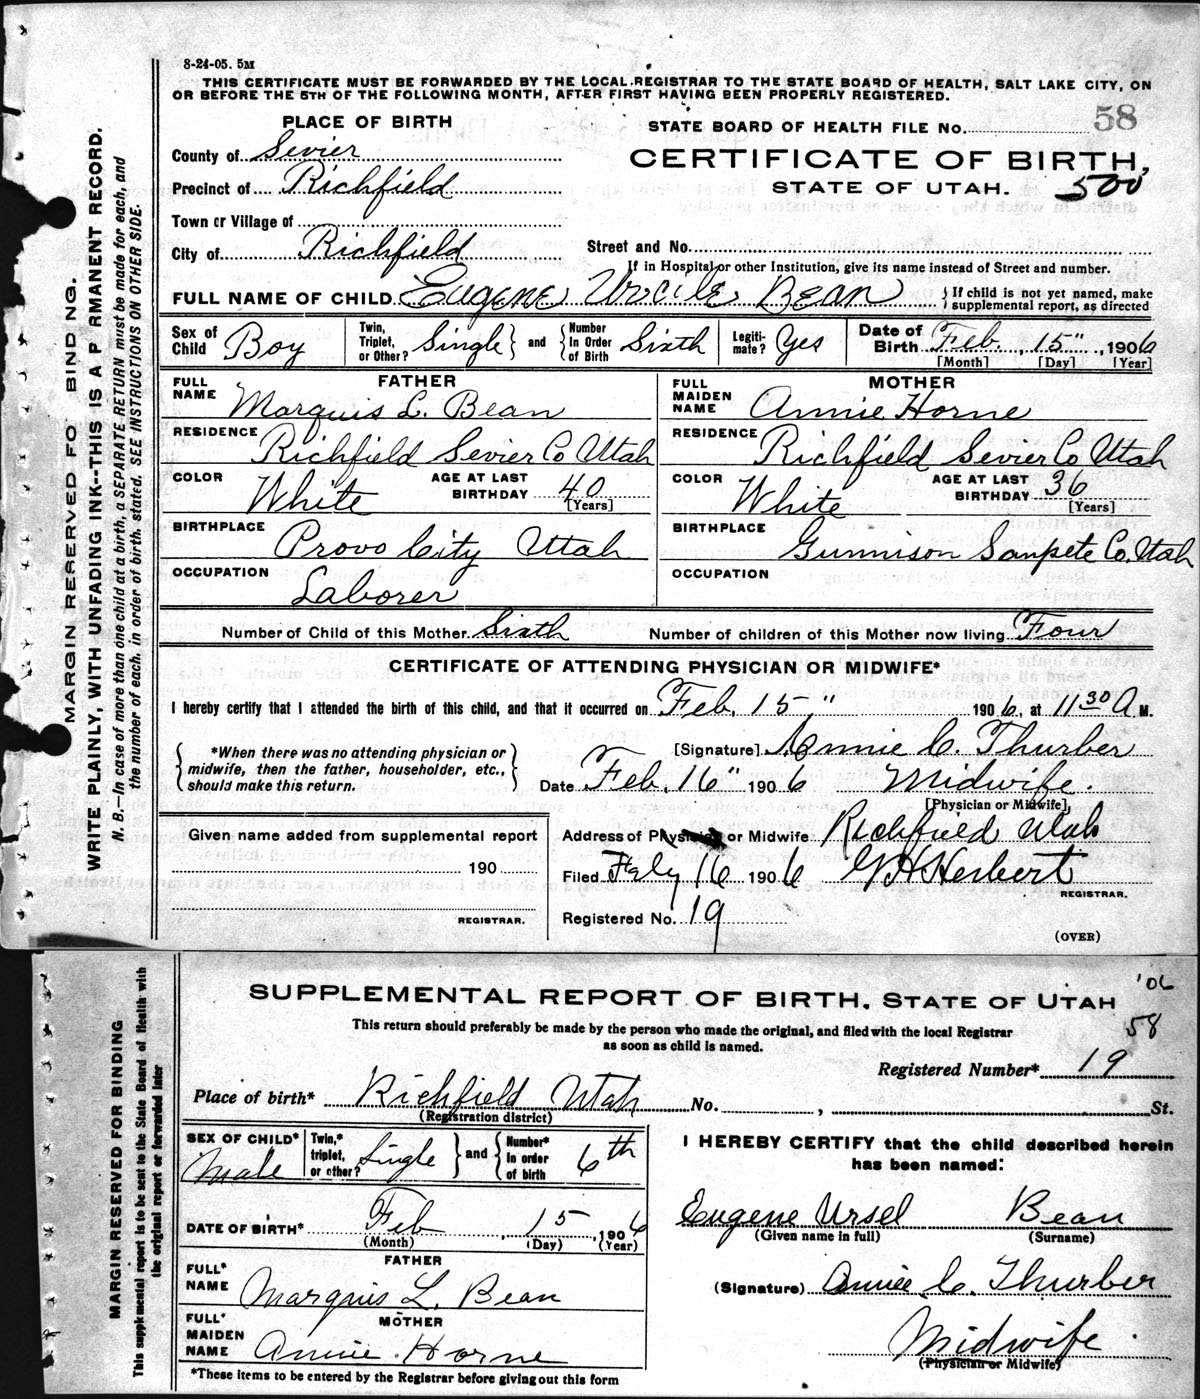 8-24-05. 5M
THIS CERTIFICATE MUST BE FORWARDED BY THE LOCAL REGISTRAR TO THE STATE BOARD OF HEALTH, SALT LAKE CITY, ON
OR BEFORE THE 5TH OF THE FOLLOWING MONTH, AFTER FIRST HAVING BEEN PROPERLY REGISTERED.
PLACE OF BIRTH
STATE BOARD OF HEALTH FILE No. 58
County of Sevier
CERTIFICATE OF BIRTH,
Precinct of Richfield
STATE OF UTAH. 500
Town or Village of
City of Richfield
Street and No.
If in Hospital or other Institution, give its name instead of Street and number.
FULL NAME OF CHILD Eugene Urcile Bean { If child is not yet named, make
supplemental report, as directed
Sex of Child Boy
Twin, Triplet, or Other? Single } and { Number In Order of Birth Sixth
Legiti-mate? Yes
Date of Birth Feb. 15", 1906
[Month] [Day] [Year]
FATHER
FULL NAME Marquis L. Bean
RESIDENCE Richfield Sevier Co Utah
COLOR White AGE AT LAST BIRTHDAY 40
[Years]
BIRTHPLACE Provo City Utah
OCCUPATION Laborer
MOTHER
FULL MAIDEN NAME Annie Horne
RESIDENCE Richfield Sevier Co Utah
COLOR White AGE AT LAST BIRTHDAY 36
[Years]
BIRTHPLACE Gunnison Sanpete Co. Utah
OCCUPATION
Number of Child of this Mother Sixth Number of children of this Mother now living Four
CERTIFICATE OF ATTENDING PHYSICIAN OR MIDWIFE*
I hereby certify that I attended the birth of this child, and that it occurred on Feb. 15" 1906, at 11 30 A M.
{ *When there was no attending physician or
midwife, then the father, householder, etc.,
should make this return. }
[Signature] Annie C. Thurber
Date Feb. 16" 1906 Midwife.
[Physician or Midwife]
Given name added from supplemental report
190
REGISTRAR.
Address of Physician or Midwife Richfield Utah
Filed 16 1906 G H Herbert
REGISTRAR.
Registered No. 19
(OVER)
MARGIN RESERVED FO BINDING.
WRITE PLAINLY, WITH UNFADING INK--THIS IS A P RMANENT RECORD.
N. B.—In case of more than one child at a birth, a SEPARATE RETURN must be made for each, and
the number of each, in order of birth, stated. SEE INSTRUCTIONS ON OTHER SIDE.
SUPPLEMENTAL REPORT OF BIRTH, STATE OF UTAH '06
This return should preferably be made by the person who made the original, and filed with the local Registrar
as soon as child is named.
58
Registered Number* 19
Place of birth* Richfield Utah No. , St.
(Registration district)
SEX OF CHILD* Male
Twin,* triplet, or other? Single } and { Number* In order of birth 6th
DATE OF BIRTH* Feb 15, 1906
(Month) (Day) (Year)
FATHER
FULL* NAME Marquis L. Bean
MOTHER
FULL* MAIDEN NAME Annie Horne
*These items to be entered by the Registrar before giving out this form
I HEREBY CERTIFY that the child described herein
has been named:
Eugene Ursel Bean
(Given name in full) (Surname)
(Signature) Annie C. Thurber
Midwife
(Physician or Midwife)
MARGIN RESERVED FOR BINDING
This supplemental report is to be sent to the State Board of Health with
the original report or forwarded later